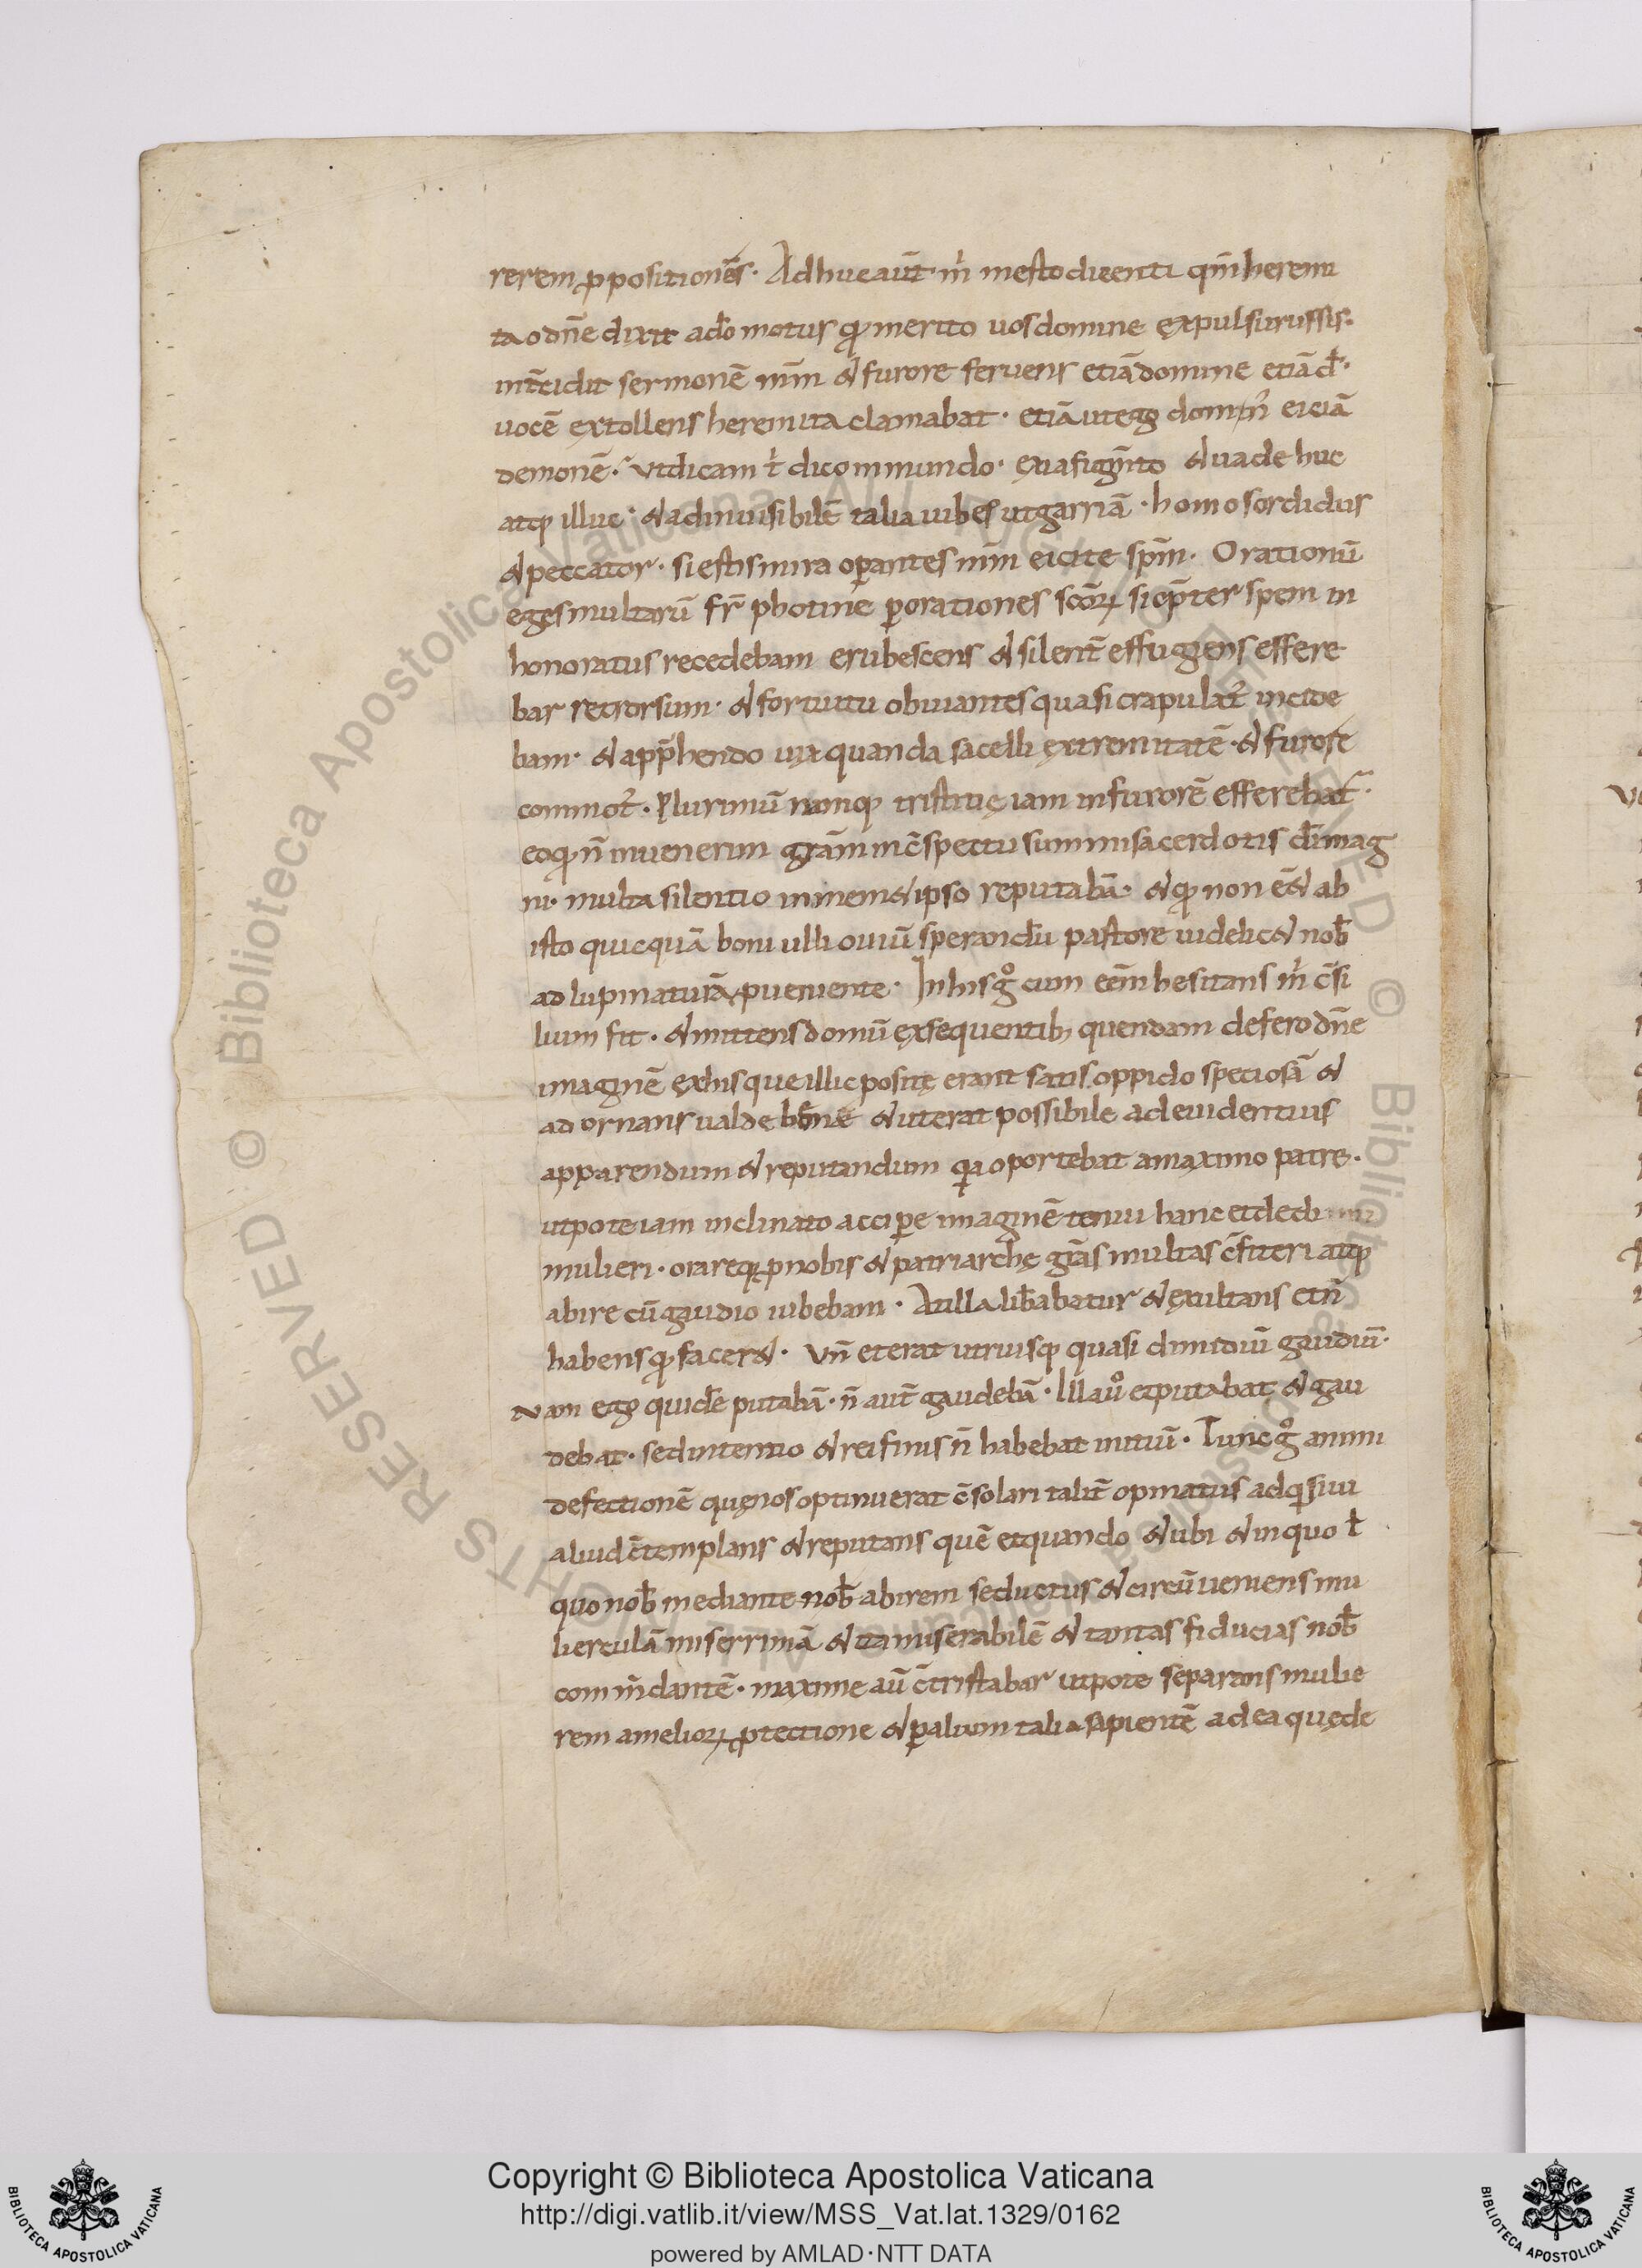 rerem ꝓpositionēs. Adhuc aūt m̄ mesto dicenti qm̄ heremi
ta o dn̄e dixit adō motus qđ merito uos domine expulsurussis.
int̄cidit sermonē nr̄m & furore feruens etiā domine etiā đ.
uocē extollens heremita clamabat. etiā ut ego domin̄ eiciā
demonē. Ut dicam t̄ dico inmundo. exi a figm̄to & uade huc
atq; illuc. & ad inuisibilē talia iubes ut garriā. homo sordidus
& peccator. si estis mira oꝑantes nr̄m eicite spm̄. Orationū
eges multarū fr̄ photine ꝑ orationes sc̄oꝝ sic p̄ter spem in
honoratus recedebam erubescens & silent̄ effugiens effere
bar retrorsum. & fortuitu obuiantes quasi crapulat᷒ incide
bam. & app̄hendo uix quanda sacelli extremitatē. & furore
commot᷒. Plurimū namq; tristitię iam in furorē efferebat᷒.
eo qđ n̄ inuenerim gr̄am in c̄spectu summi sacerdotis dī mag
ni. multa silentio in memet ipso reputabā. & qđ non eē& ab
isto quicquā boni ulli ouiū sperandū pastore uidelic& nob̄
ad lupi naturā ꝑueniente. In his gͦ cum eēm hesitans m̄ c̄si
lium fit. & mittens domū exsequentib; quendam defero dn̄e
imaginē ex his que illic positę erant satis oppido speciosā &
ad ornans ualde bene & ut erat possibile ad euidentius
apparendum & reputandum qa oportebat a maximo patre.
utpote iam inclinato acciꝑe imaginē tenui hanc et dedi
mulieri. orareq; ꝓ nobis & patriarchę gr̄as multas c̄fiteri atq;
abire cū gaudio iubebam. At illa lib̄abatur & exultans et n̄
habens qđ facer&. Un̄ et erat utriusq; quasi dimidiū gaudiū.
Nam ego quidē putabā. n̄ aut̄ gaudebā. Illa uͦ et putabat & gau
debat. sed intentio & rei finis n̄ habebat initiū. Tunc gͦ animi
defectionē quę nos optinuerat c̄solari talit̄ opinatus adqsiui
aliud c̄templans & reputans quē et quando & ubi & in quo t̄
quo nob̄ mediante nob̄ abirem seductus & circūueniens mu
lierculā miserrimā & ita miserabilē & tantas fiducias nob̄
comm̄dantē. maxime aū c̄tristabar utpote separans mulie
rem a melioꝝ ꝓtectione & ꝑ alium talia sapientē ad ea quę de
Copyright © Biblioteca Apostolica Vaticana
http://digi.vatlib.it/view/MSS_Vat.lat.1329/0162
powered by AMLAD·NTT DATA
BIBLIOTECA APOSTOLICA VATICANA
BIBLIOTECA APOSTOLICA VATICANA